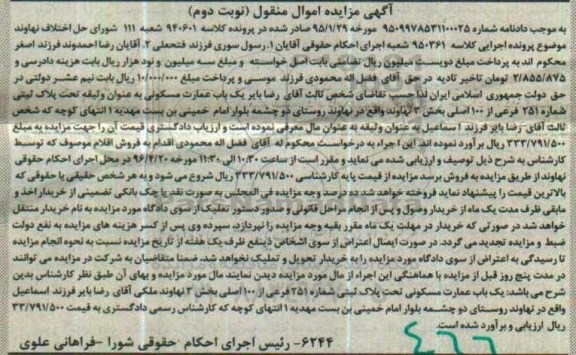 آگهی مزایده اموال منقول (نوبت دوم)
به موجب دادنامه شماره 9509978531100025 مورخه 95/1/29 صادر شده در پرونده کلاسه 940601 شعبه 111 شورای حل اختلاف نهاوند
موضوع پرونده اجرایی کلاسه 950361 شعبه اجرای احکام حقوقی آقایان 1. رسول سوری فرزند فتحعلی 2. آقایان رضا احمدوند فرزند اصغر
محکوم اند به پرداخت مبلغ دویست میلیون ریال تضامنی بابت اصل خواسته و مبلغ سه میلیون و نود هزار ریال بابت هزینه دادرسی و
2/855/875 تومان تاخیر تادیه در حق آقای فضل اله محمودی فرزند موسی و پرداخت مبلغ 10/000/000 ریال بابت نیم عشر دولتی در
حق دولت جمهوری اسلامی ایران لذا حسب تقاضای شخص ثالث آقای رضا بابر یک باب عمارت مسکونی به عنوان وثیقه تحت پلاک ثبتی
شماره 251 فرعی از 100 اصلی بخش 3 نهاوند واقع در نهاوند روستای دو چشمه بلوار امام خمینی بن بست مهدیه 1 انتهای کوچه که شخص
ثالث آقای رضا بابر فرزند اسماعیل به عنوان وثیقه به عنوان مال معرفی نموده است و ارزیاب دادگستری قیمت آن را جهت مزایده به مبلغ
333/791/500 ریال برآورد نموده اند. این اجراء به درخواست محکوم له آقای فضل اله محمودی اقدام به فروش اقلام موصوف که توسط
کارشناس به شرح ذیل توصیف و ارزیابی شده می نماید و مقرر است از ساعت 10:30 الی 11:30 مورخه 96/2/20 در محل اجرای احکام حقوقی
نهاوند از طریق مزایده به فروش برسد مزایده از قیمت پایه کارشناسی 333/791/500 ریال شروع می شود و به هر شخص حقیقی یا حقوقی که
بالاترین قیمت را پیشنهاد نماید فروخته خواهد شد ده درصد وجه مزایده فی المجلس به صورت نقد یا چک بانکی تضمینی از خریدار اخذ و
مابقی ظرف مدت یک ماه از خریدار وصول و پس از انجام مراحل قانونی و صدور دستور تملیک از سوی دادگاه مورد مزایده به نام خریدار منتقل
خواهد شد در صورتی که خریدار در مهلت یک ماه مقرر بقیه وجه مزایده را نپردازد، سپرده وی پس از کسر هزینه های مزایده به نفع دولت
ضبط و مزایده تجدید می گردد. در صورت ایصال اعتراض از سوی اشخاص ذینفع ظرف یک هفته از تاریخ مزایده نسبت به نحوه انجام مزایده
تا رسیدگی به اعتراض از سوی دادگاه مورد مزایده را به خریدار تحویل و تملیک نخواهد شد. ضمنا متقاضیان به شرکت در مزایده می توانند
در مدت پنج روز قبل از مزایده با هماهنگی این اجراء از مال مورد مزایده دیدن نمایند مال مورد مزایده و بهای آن طبق نظر کارشناس بدین
شرح می باشد: یک باب عمارت مسکونی تحت پلاک ثبتی شماره 251 فرعی از 100 اصلی بخش 3 نهاوند ملکی آقای رضا بابر فرزند اسماعیل
واقع در نهاوند روستای دو چشمه بلوار امام خمینی بن بست مهدیه 1 انتهای کوچه که کارشناس رسمی دادگستری به قیمت 33/791/500
ریال ارزیابی و برآورد شده است.
6244- رئیس اجرای احکام حقوقی شورا -فراهانی علوی
466